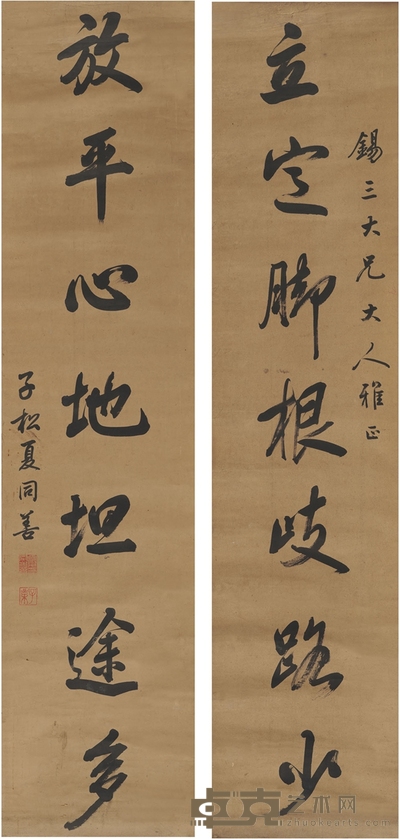 錫三大兄大人雅正
立定脚根歧路少
放平心地坦途多
子松夏同善
卓克艺术网